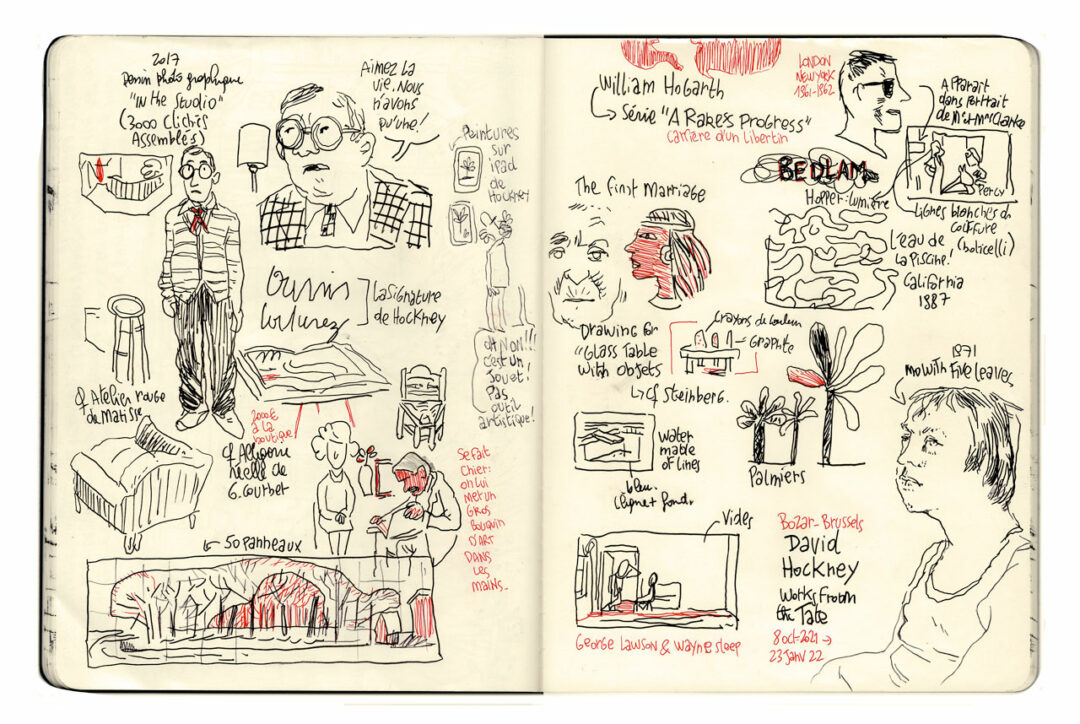 2017
Dessin photographique
"In the Studio"
(3000 clichés
Assemblés)
AiMEZ LA
Vie. Nous
n'avons
qu'une!
Peintures
sur
ipad
de
Hockney
La signature
de Hockney
Oh NoN!!!
c'est un
Jouet!
Pas
outil
artistique!
cf Atelier rouge
de Matisse
2000€
à la
boutique
cf Allégorie
réelle de
G. Courbet
Se fait
Chier:
on lui
Met un
Gros
Bouquin
D'ART
DANS
Les
Mains...
50 panneaux
William Hogarth
Série "A Rake's Progress"
Carrière d'un libertin
LONDON
NEW YORK
1961-1962
Apparait
dans Portrait
de Mr et Mrs Clarke
Percy
BEDLAM
Hopper-Lumière
Lignes blanches de
coiffure
(boticelli)
The first Marriage
L'eau de
La Piscine!
California
1887
Drawing for
"Glass Table
with objets
cf Steinberg.
Crayons de couleur
Graphite
1871
Mo with Five leaves
water
made
of lines
Palmiers
Vides
George Lawson & Wayne sleep
Bozar-Brussels
David
Hockney
Works from
the Tate
8 oct-2021 →
23 Janv 22